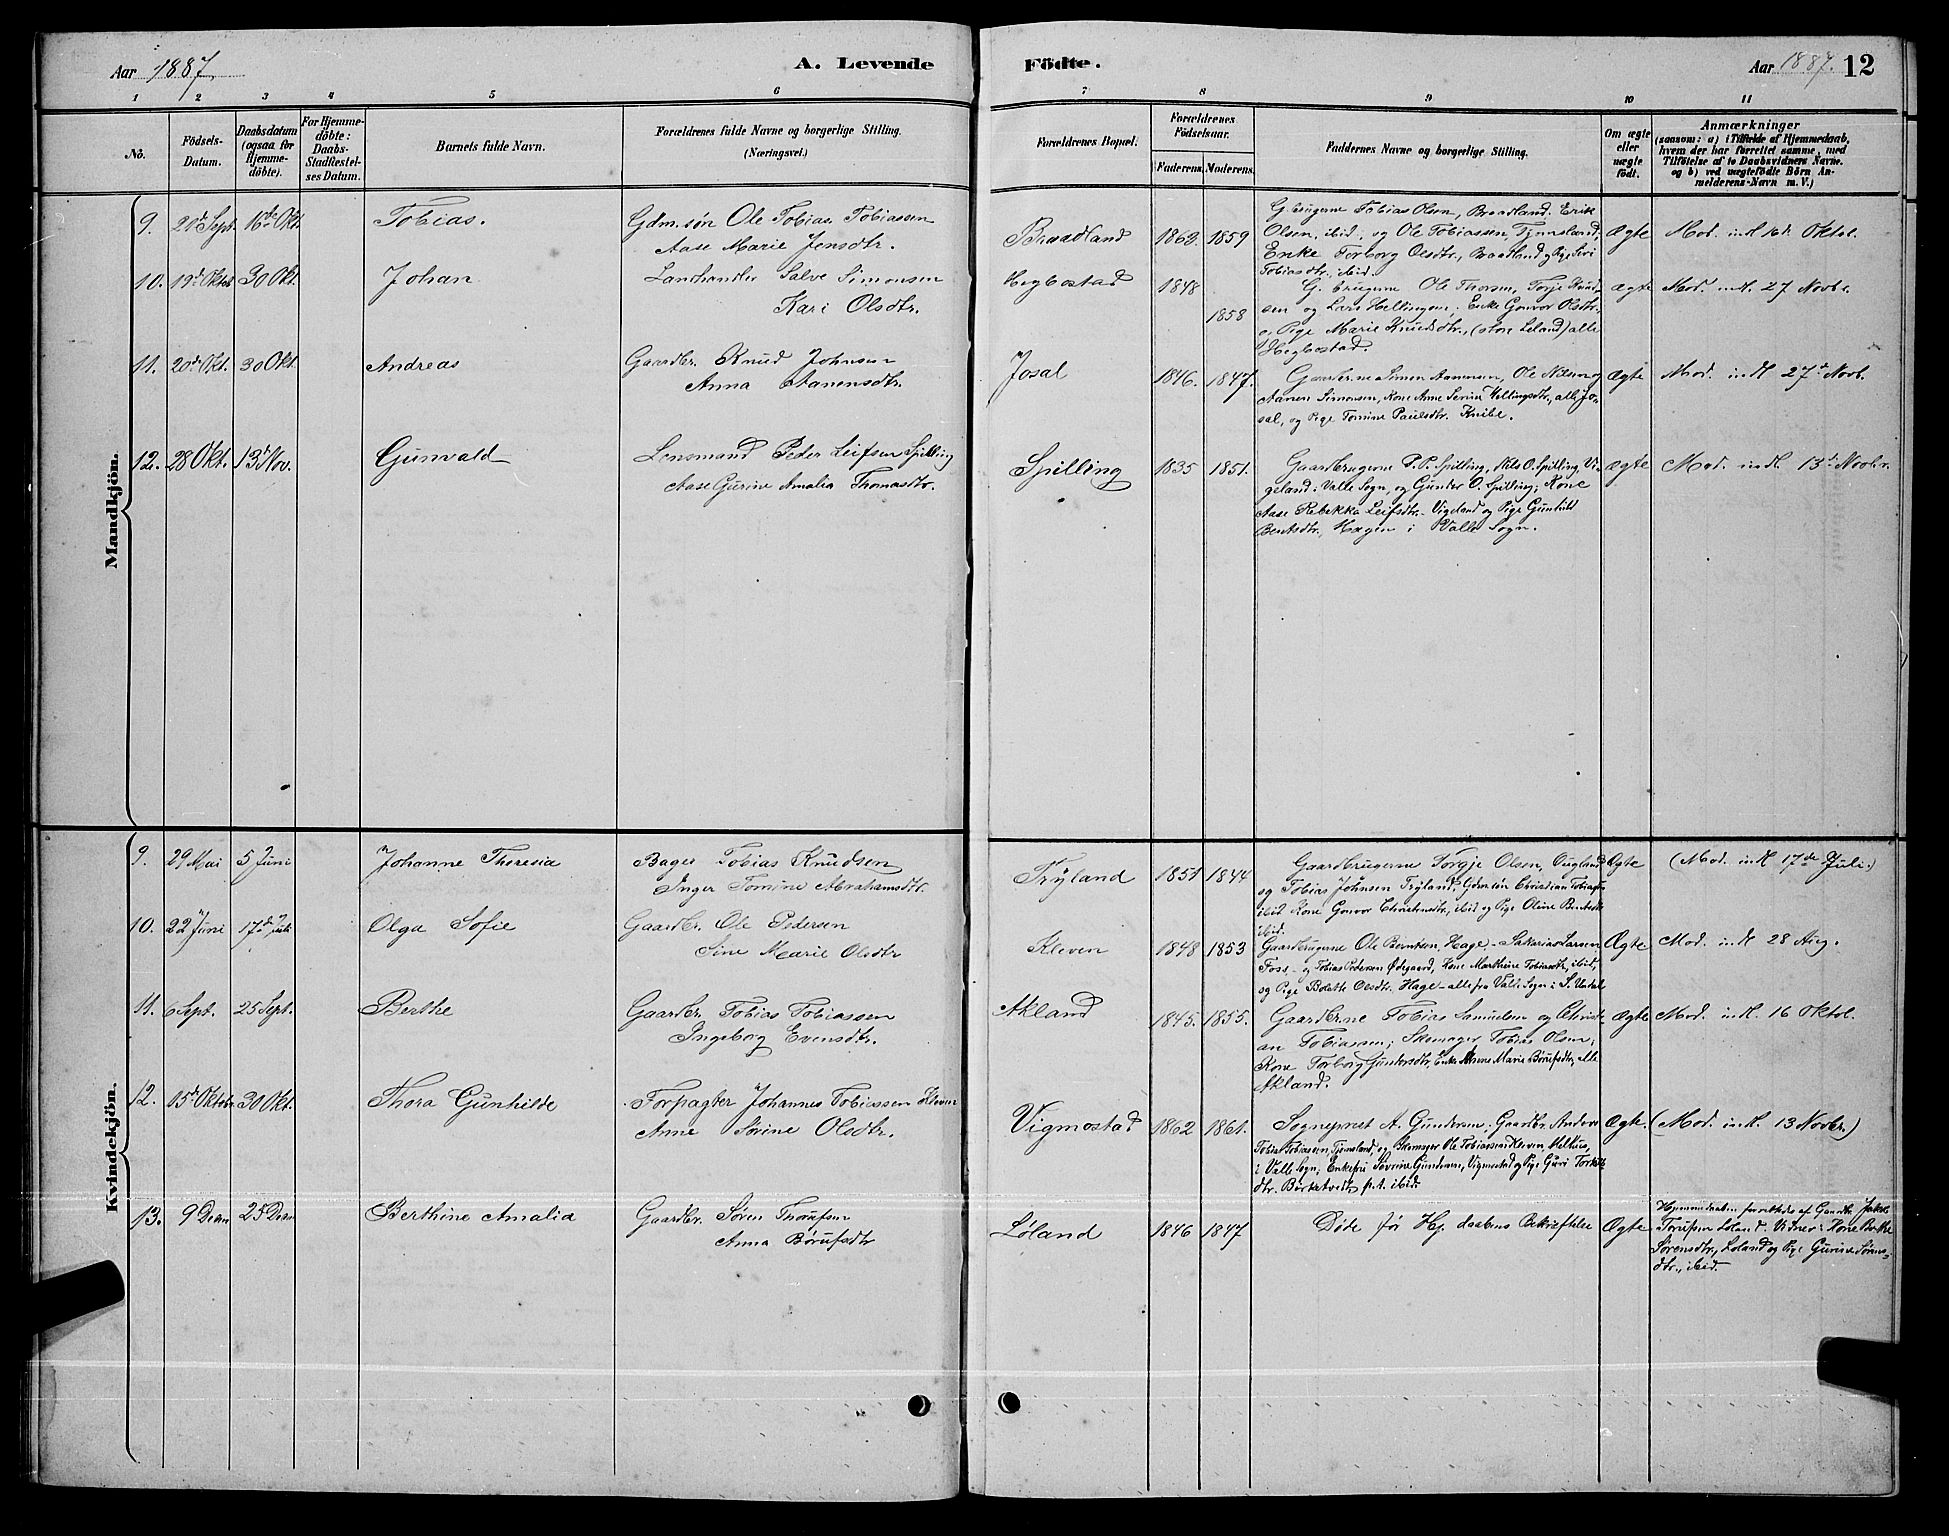 Aar 1887. A. Levende Födte. Aar 1887. 12
1 2 3 4 5 6 7 8 9 10 11
No.
Födsels-
Datum.
Daabsdatum
(ogsaa for
Hjemme-
döbte).
For Hjemme-
döbte:
Daabs-
Stadfæstel-
ses Datum.
Barnets fulde Navn.
Forældrenes fulde Navne og borgerlige Stilling.
(Næringsvei.)
Forældrenes Bopæl.
Forældrenes
Födselsaar.
Faderens. Moderens.
Faddernes Navne og borgerlige Stilling.
Om ægte
eller
uægte
födt.
Anmærkninger
(saasom: a) i Tilfælde af Hjemmedaab,
hvem der har forrettet samme, med
Tilföielse af to Daabsvidners Navne.
og b) ved uægtefödte Börn An-
melderens Navn m. V.)
Mandkjön.
9. 20de Sept. 16de Okt. Tobias. Gdm.søn Ole Tobias Tobiassen
Aase Marie Jensdtr.
Braadland 1863. 1859
G.brugerne Tobias Olsen, Braadland. Erik
Olsen, ibid, og Ole Tobiassen, Tjomsland,
Enke Torborg Olsdtr., Braadland og Pige Siri
Tobiasdtr., ibid.
Ægte Mod. ind 16de Oktbr.
10. 19de Oktob 30 Okt. Johan Landhandler Salve Simonsen
Kari Olsdtr.
Hegbostad 1848 1858
G. brugerne Ole Thorsen, Torje Knud-
sen og Lars Hellingsen; Enke Gonvor Olsdtr.
og Pige Marie Knudsdtr., (store Leland) alle
Hegbostad.
Ægte Mod. ind. 27 Novbr.
11. 20de Okt. 30 Okt. Andreas Gaardbr. Knud Johnsen
Anna Aanensdtr.
Josal 1846. 1847.
Gaardbrne Simon Aanensen, Ole Nilsen og
Aanen Simonsen, Kone Anne Serine Hellingsdtr., alle Jo-
sal, og Pige Tomine Paulsdtr. Knibe.
Ægte Mod. indk 27de Novb.
12. 28 Okt. 13de Nov. Gunvald Lensmand Peder Leifsen Spilling
Aase Gurine Amalia Thomasdtr.
Spilling 1835 1851.
Gaardbrugerne P. P. Spilling, Nils O. Spilling, Vi-
geland i Valle Sogn, og Gunder O. Spilling; Kone
Aase Rebekka Leifsdtr. Vigeland og Pige Gunhild
Bentsdtr., Hagen i Valle Sogn.
Ægte Mod. indk. 13de Novbr.
Kvindekjön.
9. 29 Mai 5 Juni Johanne Theresia Bager Tobias Knudsen
Inger Tomine Abrahamsdtr.
Tryland 1851 1844
Gaardbrugerne Torgje Olsen, Ougland
og Tobias Johnsen Tryland, Gdm.søn Christian Tobiassen
ibid Kone Gonvor Christensdtr., ibid og Pige Oline Bentsdtr.
ibid.
Ægte (Mod. indk 17de Juli.)
10. 22 Juni 17de Juli Olga Sofie Gaardbr. Ole Pedersen
Sine Marie Olsdtr
Kleven 1848 1853
Gaardbrugerne Ole Berntsen, Hage, Sakarias Larsen
Foss, og Tobias Pedersen Ødegaard, Kone Marthine Tobiasdtr, ibid,
og Pige Bolette Olsdtr. Hage – alle fra Valle Sogn i S. Undal
Ægte Mod. indk 28 Aug.
11. 6 Sept. 25 Sept. Berthe Gaardbr. Tobias Tobiassen
Ingeborg Evensdtr.
Akland 1845. 1855.
Gaardbrne Tobias Samuelsen og Christi-
an Tobiassen; Skomager Tobias Olsen;
Kone Torborg Gundersdtr, Enke Anne Marie Børufsdtr, alle
Akland.
Ægte Mod. indk. 16 Oktob.
12. 15de Oktobr. 30 Okt. Thora Gunhilde Forpagter Johannes Tobiassen Kleven
Anne Sørine Olsdtr.
Vigmostad 1862 1861.
Sogneprest A. Gundersen; Gaardbr. Anders
Tobias Tobiassen, Tjomsland, og Skomager Ole Tobiassen Kleven, Melhus,
i Valle Sogn; Enkefru Severine Gundersen, Vigmostad og Pige Guri Torkels
dtr. Birketvedt p.t. ibid.
Ægte. (Mod. indk. 13 Novbr.)
13. 9 Decm 25 Decm Berthine Amalia Gaardbr. Søren Thorufsen
Anna Børufsdtr
Løland 1846 1847
Døde før Hj. daabens Bekræftelse
Ægte
Hjemmedaaben forrettedes af Gaardbr. Jakob
Torufsen Løland. Vidner: Kone Berthe
Sørensdtr., Løland og Pige Gurine Sørens-
dtr., ibid.